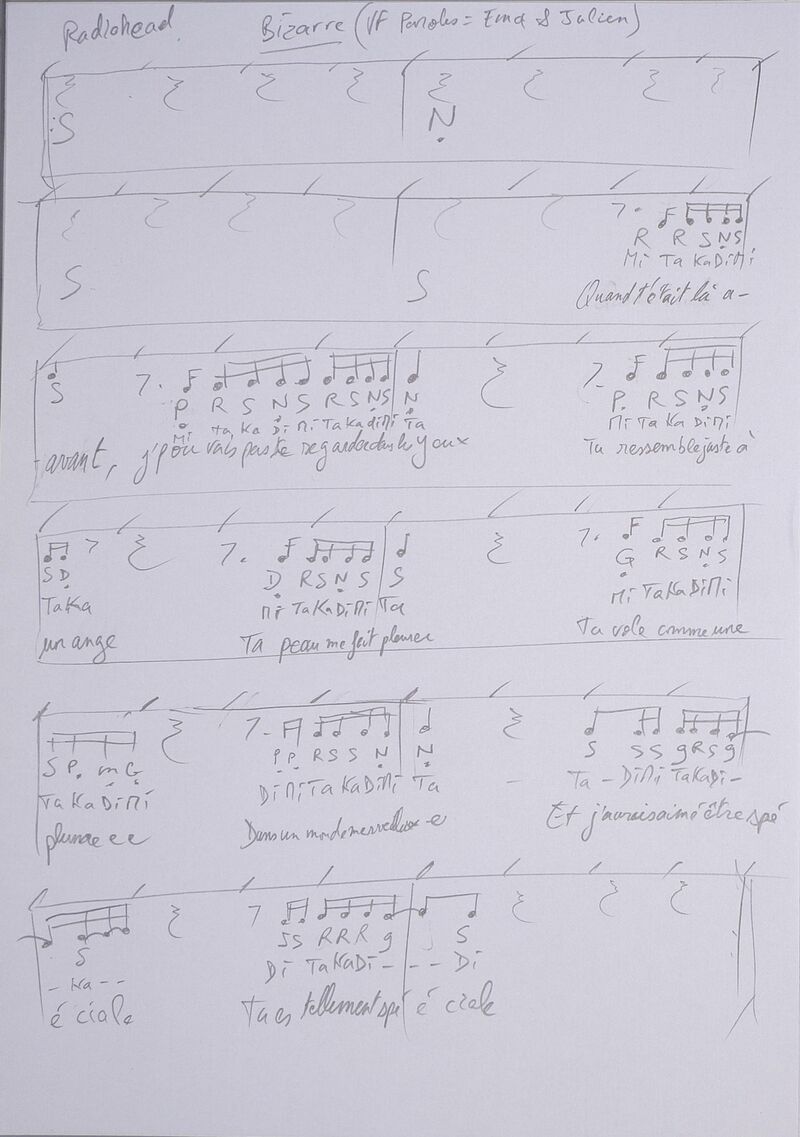 Radiohead Bizarre (VF Paroles = Ema & Julien)
S N
S S
R R S N S
Mi Ta Ka Di Mi
Quand t'était là a-
S P R S N S R S N S N P R S N S
Mi Ta Ka Di Mi Ta Ka di Mi Ta Mi Ta Ka Di Mi
avant, j'pouvais pas te regarder dans les yeux Tu ressemble juste à
S D D R S N S S G R S N S
Ta Ka Mi Ta Ka Di Mi Ta Mi Ta Ka Di Mi
un ange Ta peau me fait pleurer Tu vole comme une
S P m G P P R S S N N S S S g R S g
Ta Ka Di Mi Di Mi Ta Ka Di Mi Ta - Ta - Di Mi Ta Ka Di -
plume e e Dans un monde merveilleux -e Et j'aurais aimé être spé
S S S R R R g S
- Ka - - Di Ta Ka Di - - - Di
é ciale Tu es tellement spé é ciale